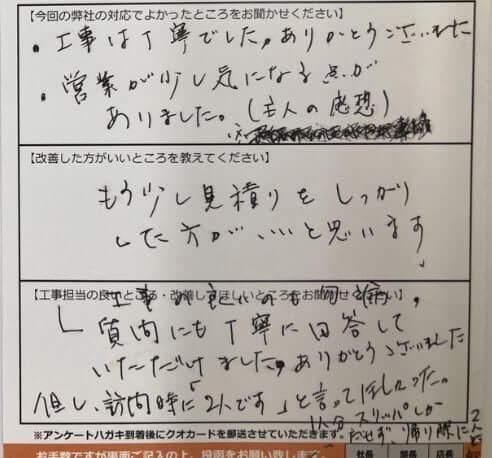 【今回の弊社の対応でよかったところをお聞かせください】
・工事は丁寧でした。ありがとうございました
・営業が少し気になる点が
ありました。(主人の感想)
【改善した方がいいところを教えてください】
もう少し見積りをしっかり
した方がいいと思います
【工事担当の良いところ・改善してほしいところをお聞かせください】
工事の良いのも勿論。
質問にも丁寧に回答して
いただけました。ありがとうございました
但し、訪問時に「2人です」と言ってほしかった。
1人分スリッパしか
だせず、帰り際に2人と
※アンケートハガキ到着後にクオカードを郵送させていただきます。
お手数ですが裏面ご記入の上、投函をお願い致します。
社長 部長 店長